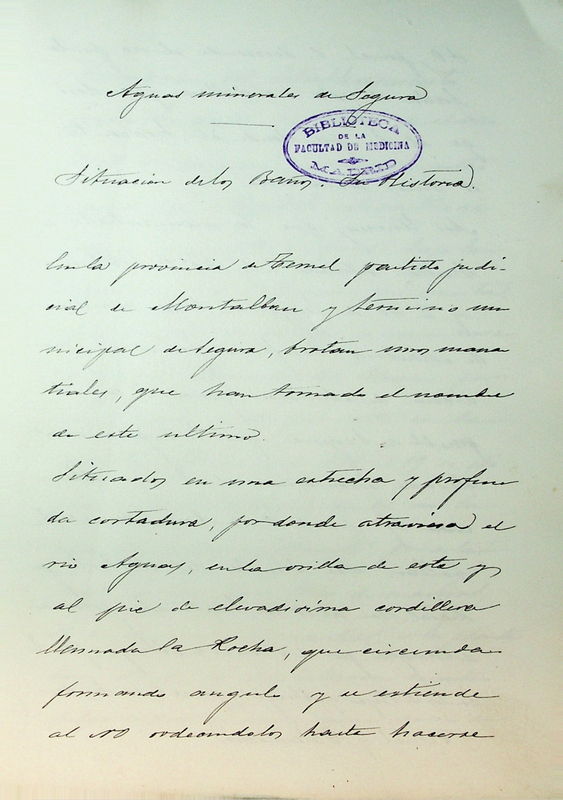 Aguas minerales de Segura
BIBLIOTECA
DE LA
FACULTAD DE MEDICINA
MADRID
Situación de los Baños. Su Historia.
En la provincia de Teruel partido judi-
cial de Montalban y termino mu
nicipal de Segura, brotan unos mana
tiales, que han tomado el nombre
de este ultimo.
Situados en una estrecha y profun
da cortadura, por donde atraviesa el
rio Aguas, en la orilla de este y
al pie de elevadisima cordillera
llamada la Rocha, que circunda
formando angulo y se estiende
al NO rodeandolos hasta hacerse